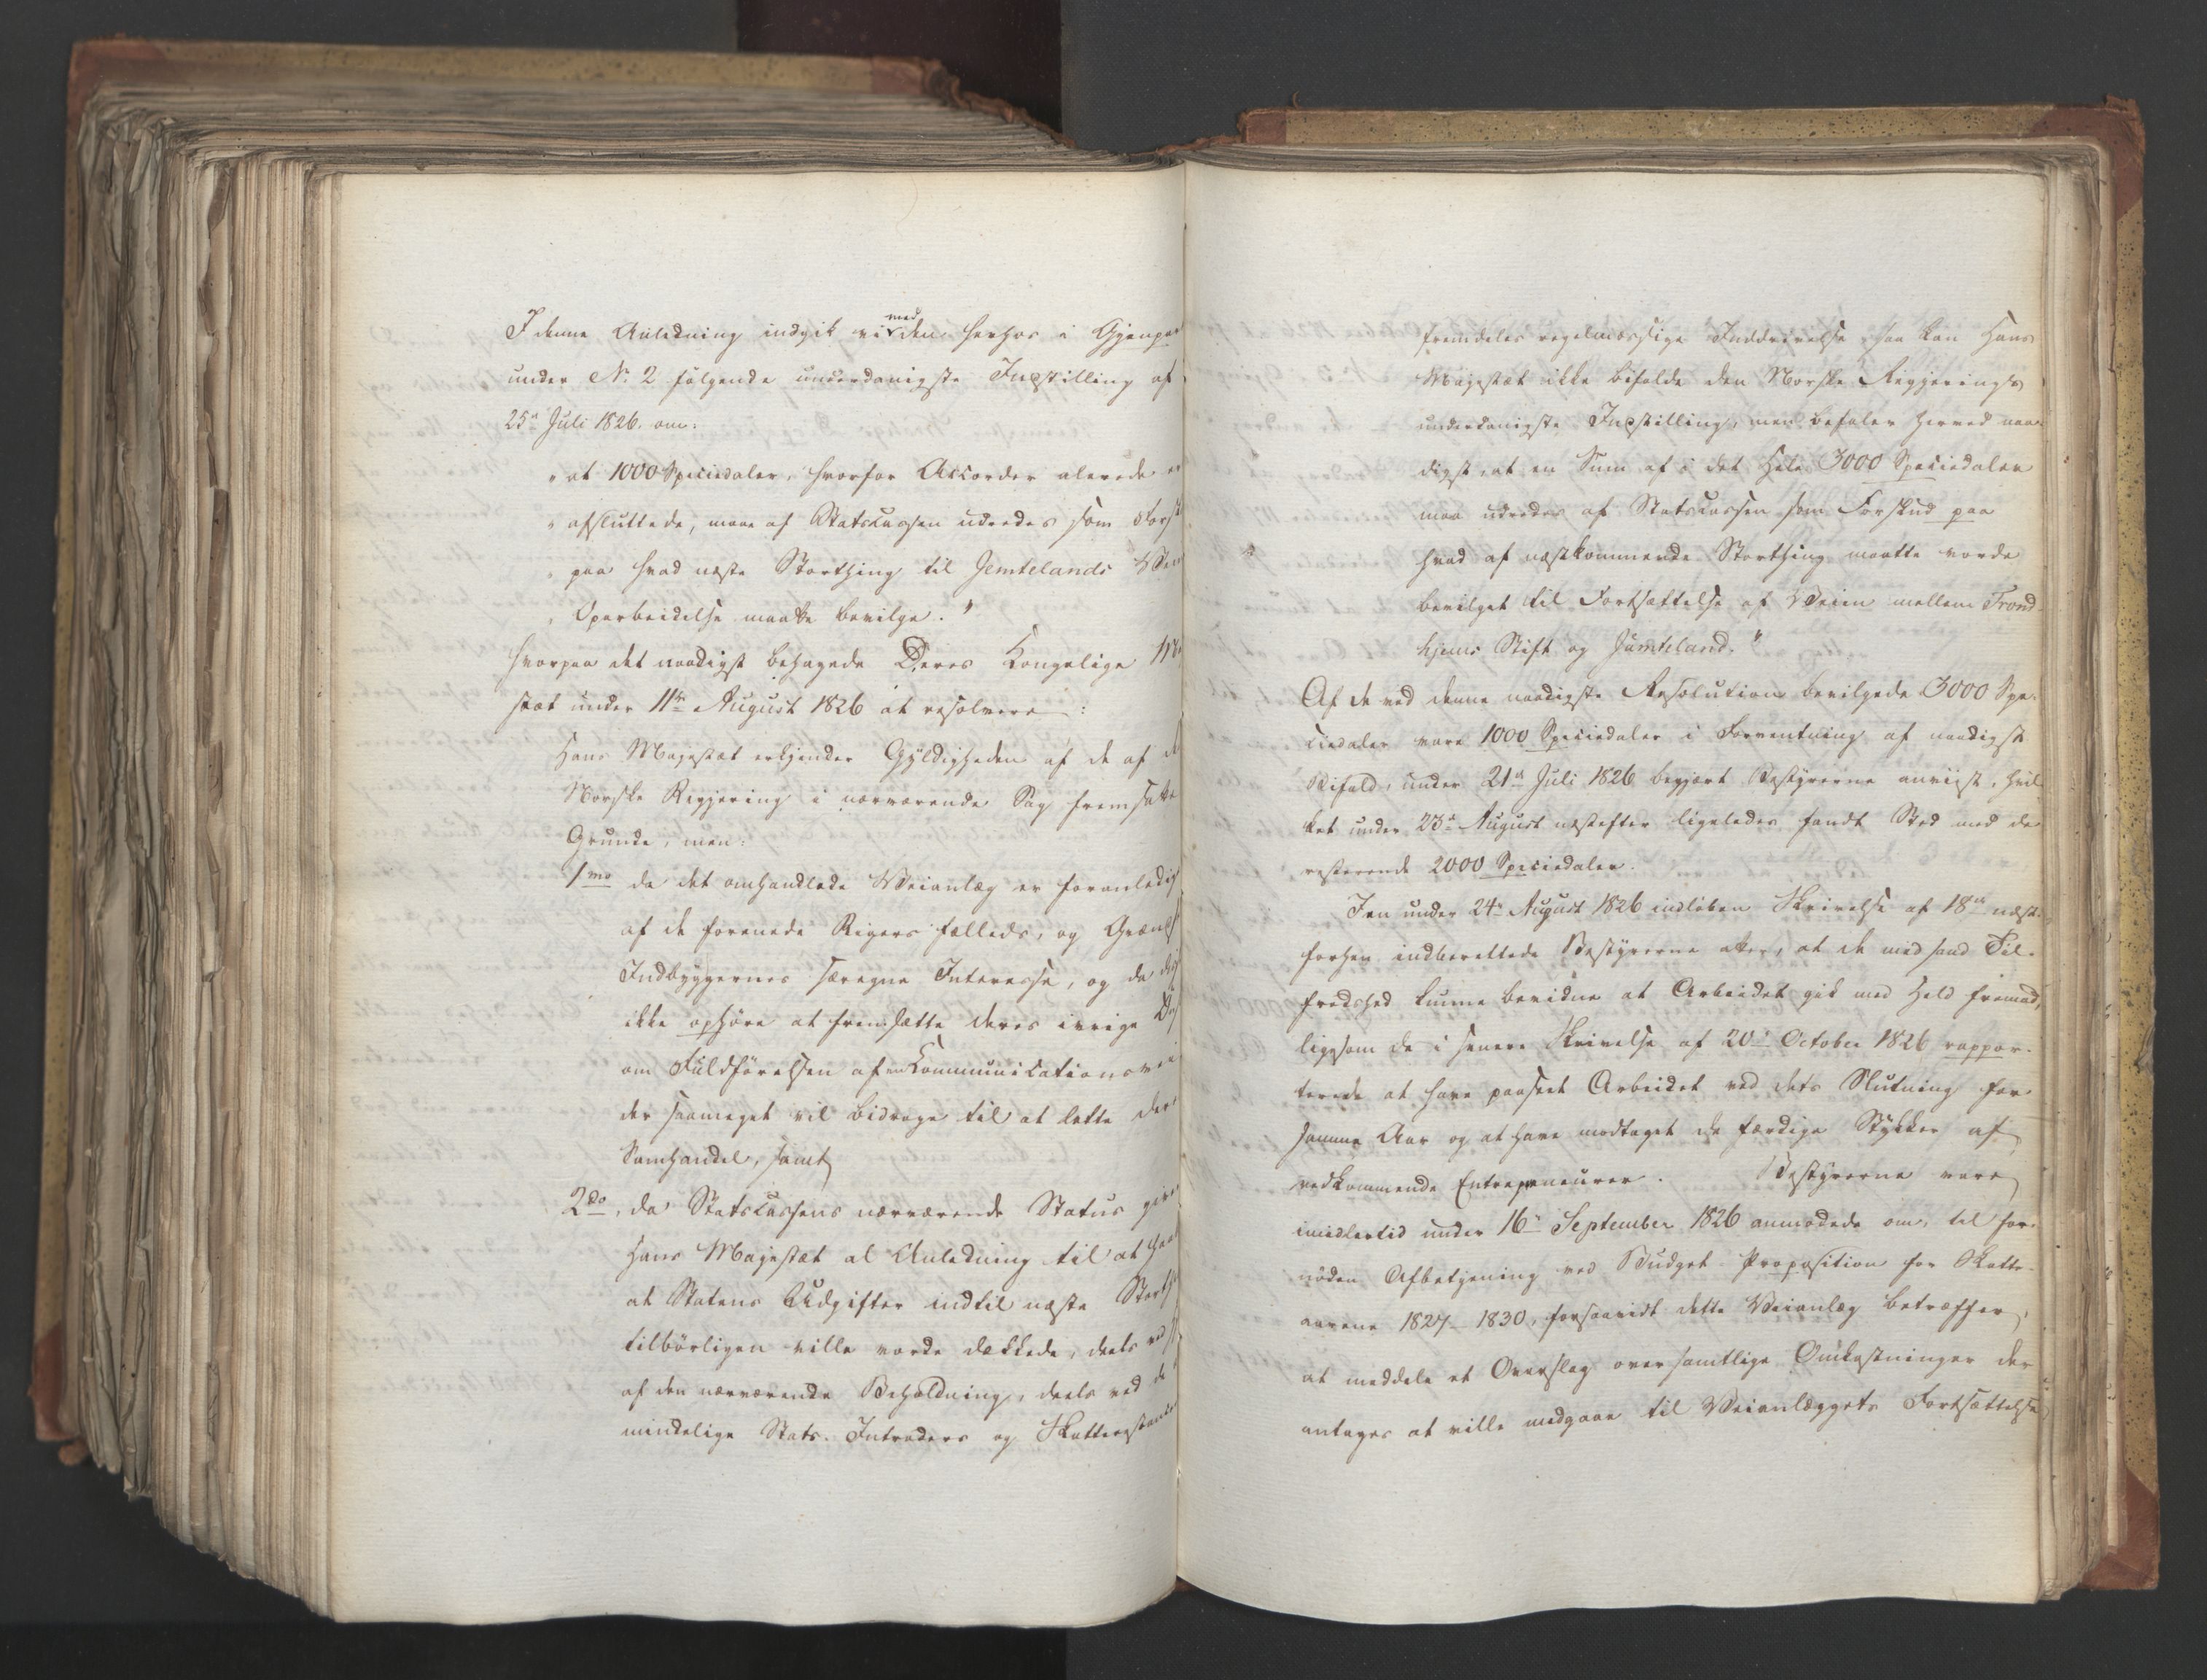 I denne Anledning indgik vi med den herhos i Gjenpar
under No 2 følgende underdanigste Indstilling af
25de Juli 1826. om:
"at 1000 Speciedaler, hvorfor Accorder alerede er
"afsluttede, maae af Statskassen udredes som Forsk
"paa hvad næste Storthing til Jemtelands Vei
"Oparbeidelse maatte bevilge."
hvorpaa det naadigst behagede Deres Kongelige Ma
stæt under 11te August 1826 at resolvere:
Hans Majestæt erkjender Gyldigheden af de af d
Norske Regjering i nærværende Sag fremsatte
Grunde, men:
1mo da det omhandlede Veianlæg er foranledig
af de forenede Rigers fælleds, og Grænds
Indbyggernes særegne Interesse, og da di
ikke ophøre at fremsætte deres ivrige Øns
om Fuldførelsen af en Communicationsvei
der saameget vil bidrage til at lette dere
Samhandel, samt
2do, da Statskassens nærværende Status giver
Hans Majestæt al Anledning til at haa
at Statens Udgifter indtil næste Storth
tilbørligen ville vorde dækkede, deels ved H
af den nærværende Beholdning, deels ved de
mindelige Stats-Intrader og Skatterestance
fremdeles regelmæssige Inddrivelse, saa kan Hans
Majestæt ikke bifalde den Norske Regjerings
underdanigste Indstilling, men befaler herved naa-
digst, at en Sum af i det Hele 3000 Speciedaler
maa udredes af Statskassen som Forskud paa
hvad af næstkommende Storthing maatte vorde
bevilget til Fortsættelse af Veien mellem Trond-
hjems Stift og Jämteland."
Af de ved denne naadigste Resolution bevilgede 3000 Spe-
ciedaler vare 1000 Speciedaler i Forventning af naadigst
Bifald, under 21de Juli 1826 begjært Bestyrerne anviist, hvil-
ket under 23de August næstefter ligeledes fandt Sted med de
resterende 2000 Speciedaler.
I en under 24de August 1826 indløben Skrivelse af 18de næst-
forhen indberettede Bestyrerne atter, at de med sand Til-
fredshed kunne bevidne at Arbeidet gik med Held fremad,
ligesom de i senere Skrivelse af 20de October 1826 rappor-
terede at have paaseet Arbeidet ved dets Slutning for
samme Aar og at have modtaget de færdige Stykker af
vedkommende Entrepreneurer. Bestyrerne vare
imidlertid under 16de September 1826 anmodede om, til for-
nøden Afbetjening ved Budget-Proposition for Skatte-
aarene 1827–1830, forsaavidt dette Veianlæg betræffer,
at meddele et Overslag over samtlige Omkostninger der
antages at ville medgaae til Veianlæggets Fortsættelse